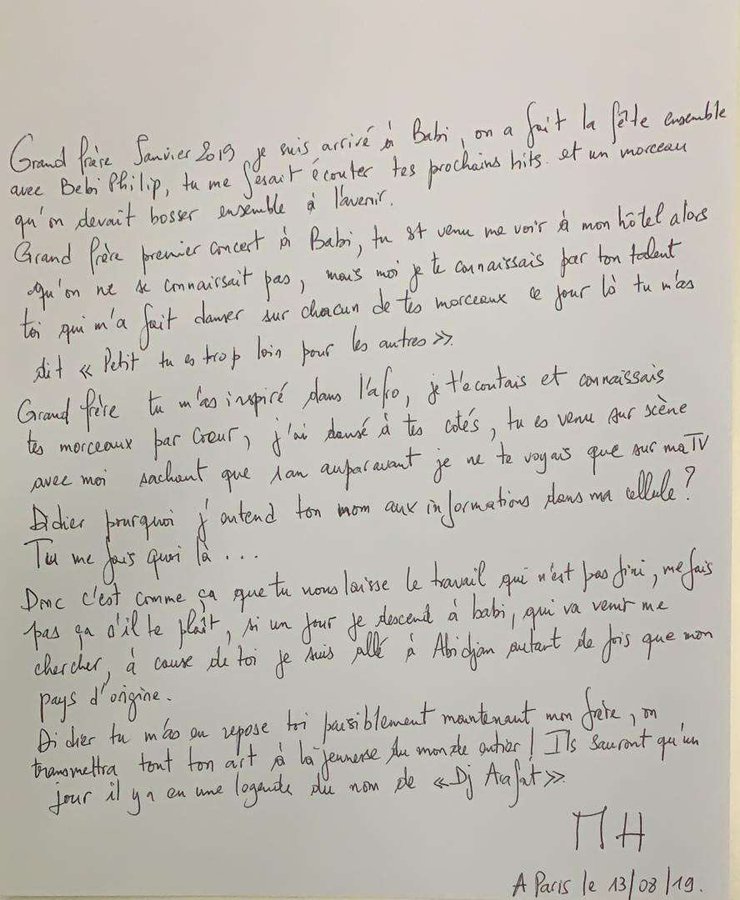 Grand frère Janvier 2019 je suis arrivé à Babi, on a fait la fête ensemble
avec Bebi Philip, tu me fesait écouter tes prochains hits et un morceau
qu'on devait bosser ensemble à l'avenir.
Grand frère premier concert à Babi, tu st venu me voir à mon hôtel alors
qu'on ne se connaissait pas, mais moi je te connaissais par ton talent
toi qui m'a fait danser sur chacun de tes morceaux ce jour là tu m'as
dit « Petit tu es trop loin pour les autres ».
Grand frère tu m'as inspiré dans l'afro, je t'ecoutais et connaissais
tes morceaux par cœur, j'ai dansé à tes cotés, tu es venu sur scène
avec moi sachant que 1an auparavant je ne te voyais que sur ma TV
Didier pourquoi j'entend ton nom aux informations dans ma cellule ?
Tu me fais quoi là ...
Donc c'est comme ça que tu nous laisse le travail qui n'est pas fini, me fais
pas ça s'il te plaît, si un jour je descend à babi, qui va venir me
chercher, à cause de toi je suis allé à Abidjan autant de fois que mon
pays d'origine.
Didier tu m'as eu repose toi paisiblement maintenant mon frère, on
transmettra tout ton art à la jeunesse du monde entier ! Ils sauront qu'un
jour il y a eu une legende du nom de « Dj Arafat ».
MH
A Paris le 13/08/19.